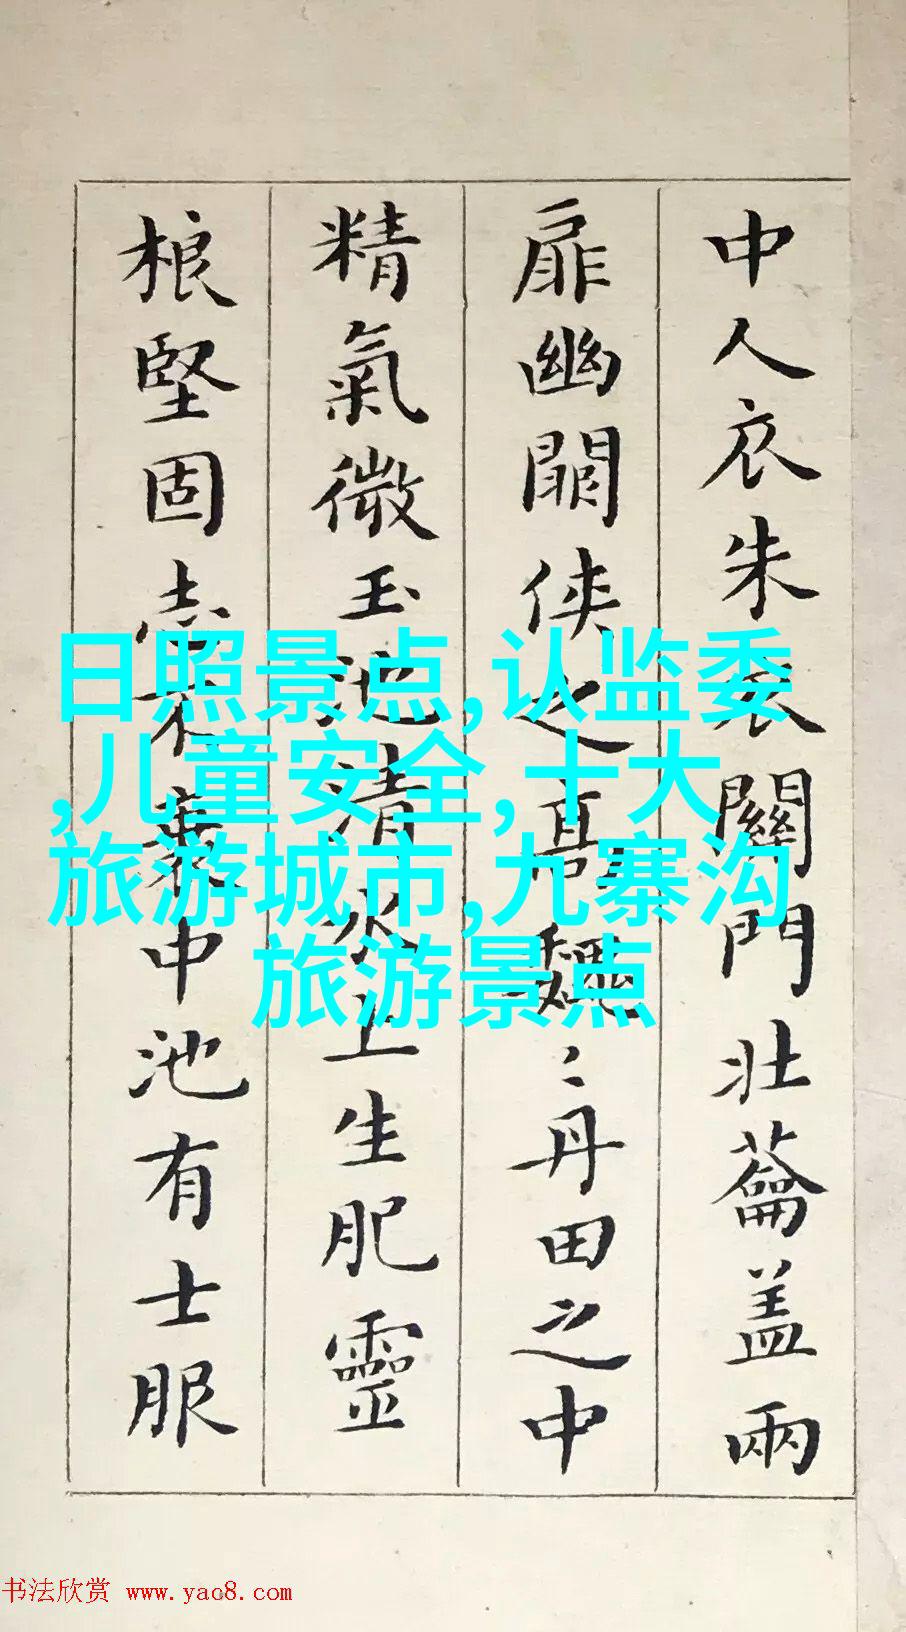 中人衣朱衣關門壯蘥盖兩
扉幽關侠之高魏〻丹田之中
精氣微玉池清水上生肥靈
根堅固志不衰中池有士服
日照景点,认监委
,儿童安全,十大
旅游城市,九寨沟
旅游景点
书法欣赏 www.yac8.com